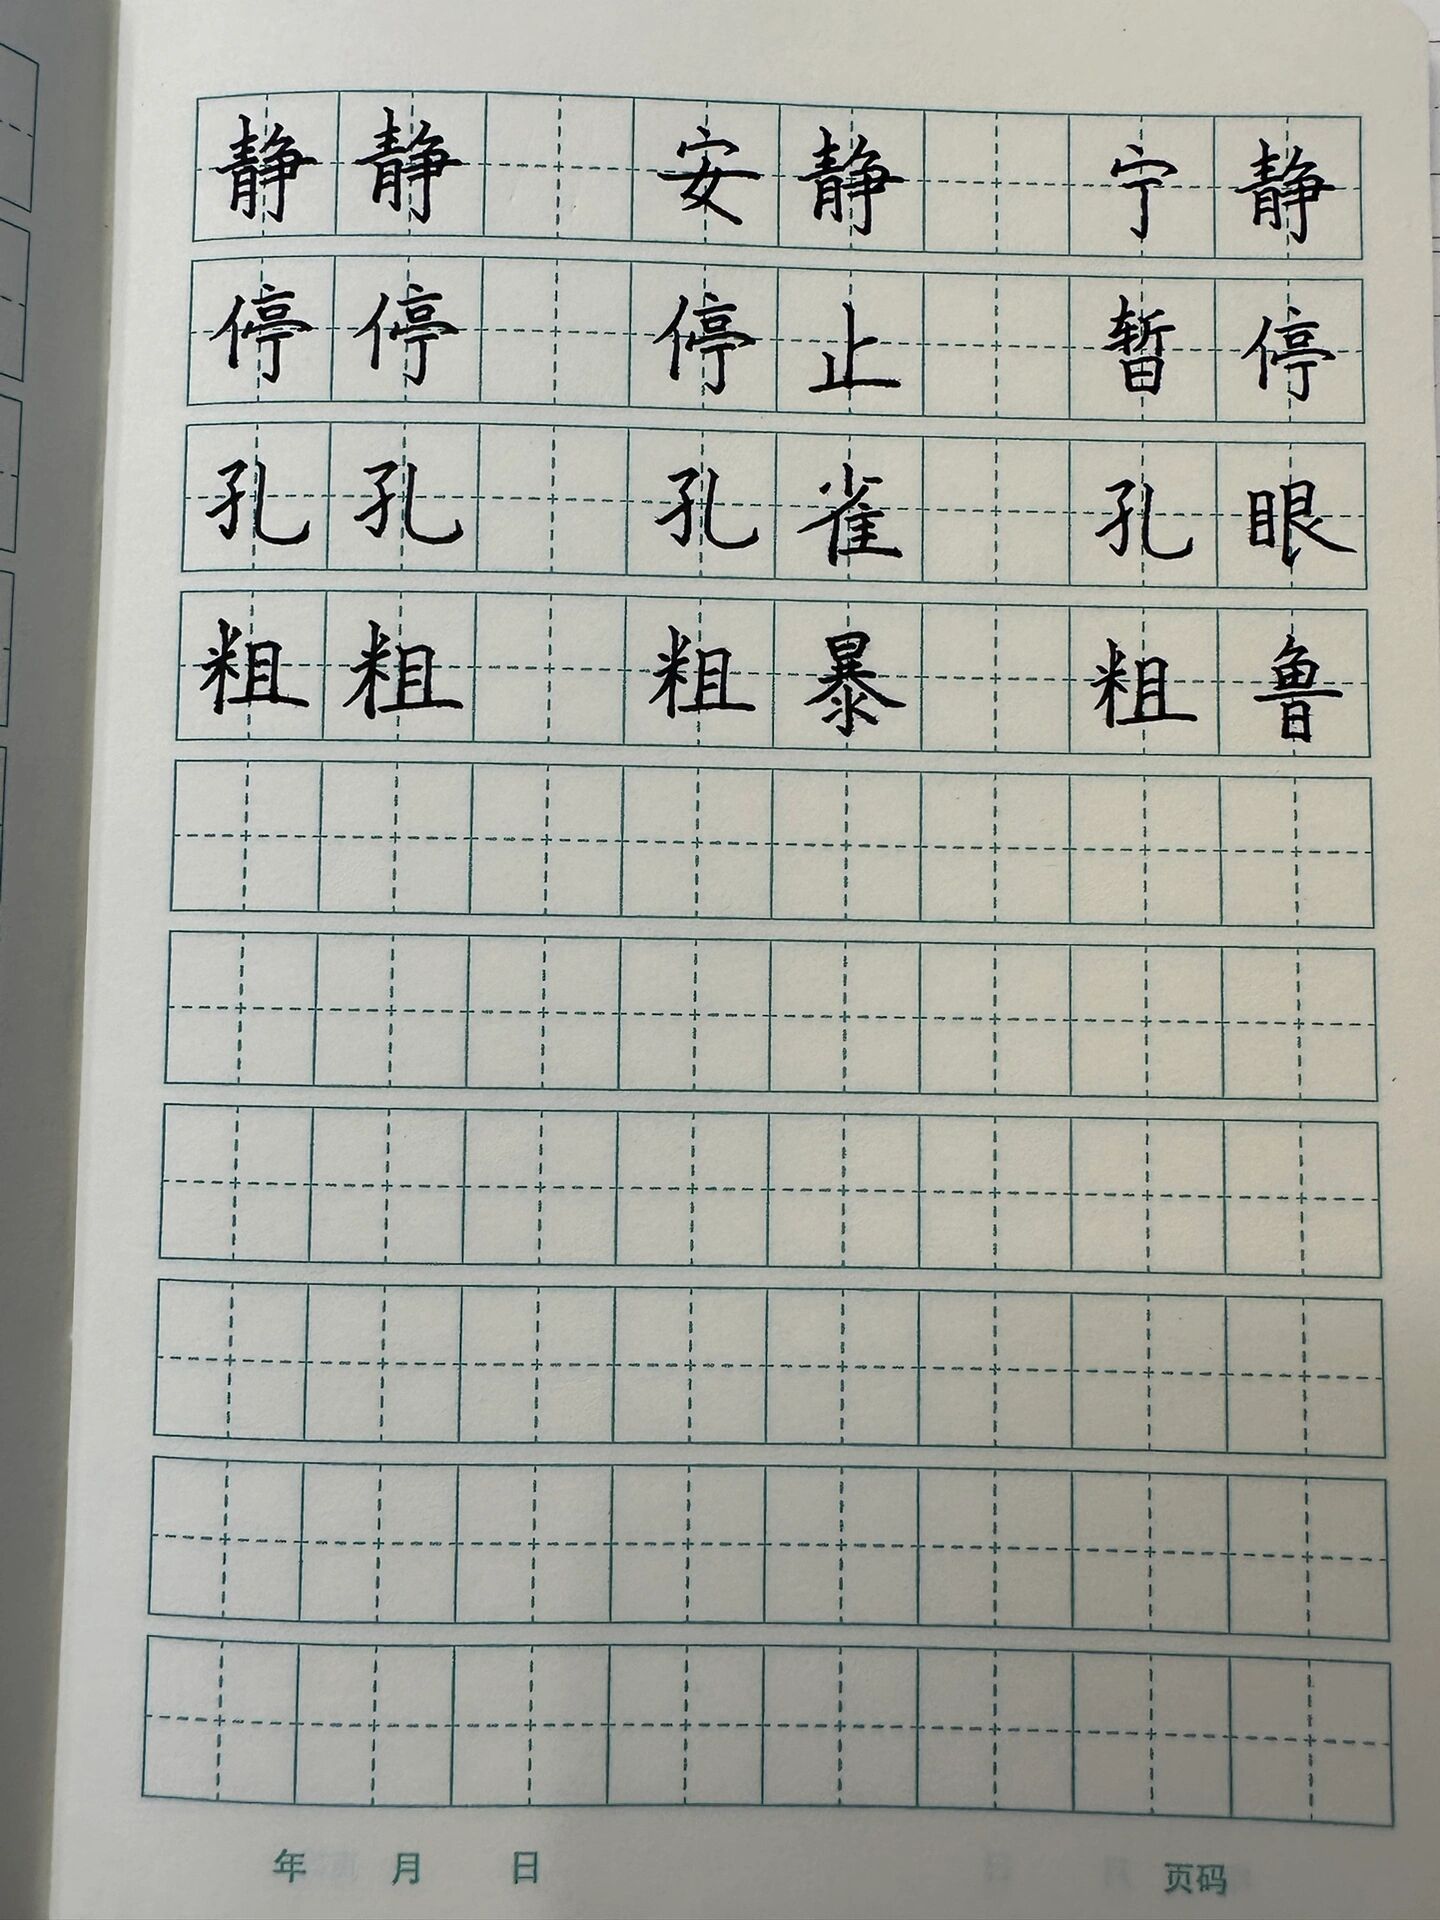 静静 安静 宁静
停停 停止 暂停
孔孔 孔雀 孔眼
粗粗 粗暴 粗鲁
年 月 日 页码